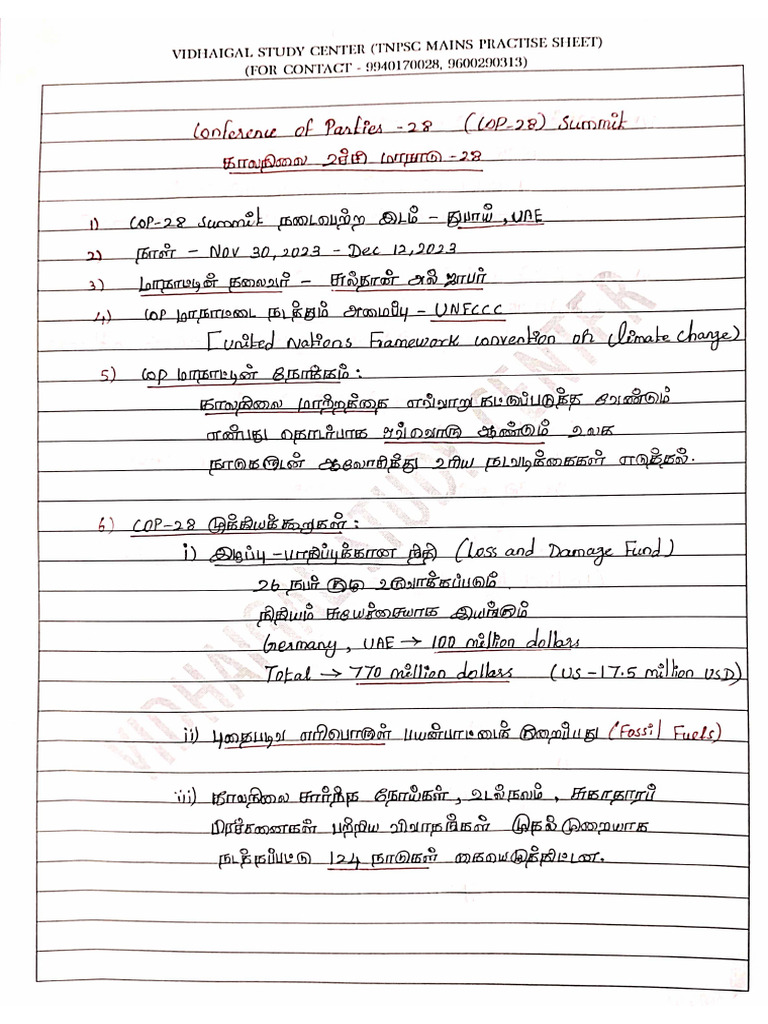 VIDHAIGAL STUDY CENTER (TNPSC MAINS PRACTISE SHEET)
(FOR CONTACT - 9940170028, 9600290313)
Conference of Parties -28 (COP-28) Summit
காலநிலை உச்சி மாநாடு -28
1) COP-28 Summit நடைபெற்ற இடம் - துபாய், UAE
2) நாள் - Nov 30,2023 - Dec 12,2023
3) மாநாட்டின் தலைவர் - சுல்தான் அல் ஜாபர்
4) COP மாநாட்டை நடத்தும் அமைப்பு - UNFCCC
[United Nations Framework convention on climate change)
5) COP மாநாட்டின் நோக்கம்:
காலநிலை மாற்றத்தை எவ்வாறு கட்டுப்படுத்த வேண்டும்
என்பது தொடர்பாக ஒவ்வொரு ஆண்டும் உலக
நாடுகளுடன் ஆலோசித்து உரிய நடவடிக்கைகள் எடுத்தல்.
6) COP-28 முக்கியக்கூறுகள்:
i) இழப்பு-பாதிப்புக்கான நிதி (Loss and Damage Fund)
26 நபர் குழு உருவாக்கப்படும்
நிதியம் சுயேச்சையாக இயங்கும்
Germany, UAE → 100 million dollars
Total → 770 million dollars (US -17.5 million USD)
ii) புதைபடிவ எரிபொருள் பயன்பாட்டைக் குறைப்பது (Fossil Fuels)
iii) காலநிலை சார்ந்த நோய்கள், உடல்நலம், சுகாதாரப்
பிரச்சனைகள் பற்றிய விவாதங்கள் முதல்முறையாக
நடத்தப்பட்டு 124 நாடுகள் கையெழுத்திட்டன.
VIDHAIGAL STUDY CENTER